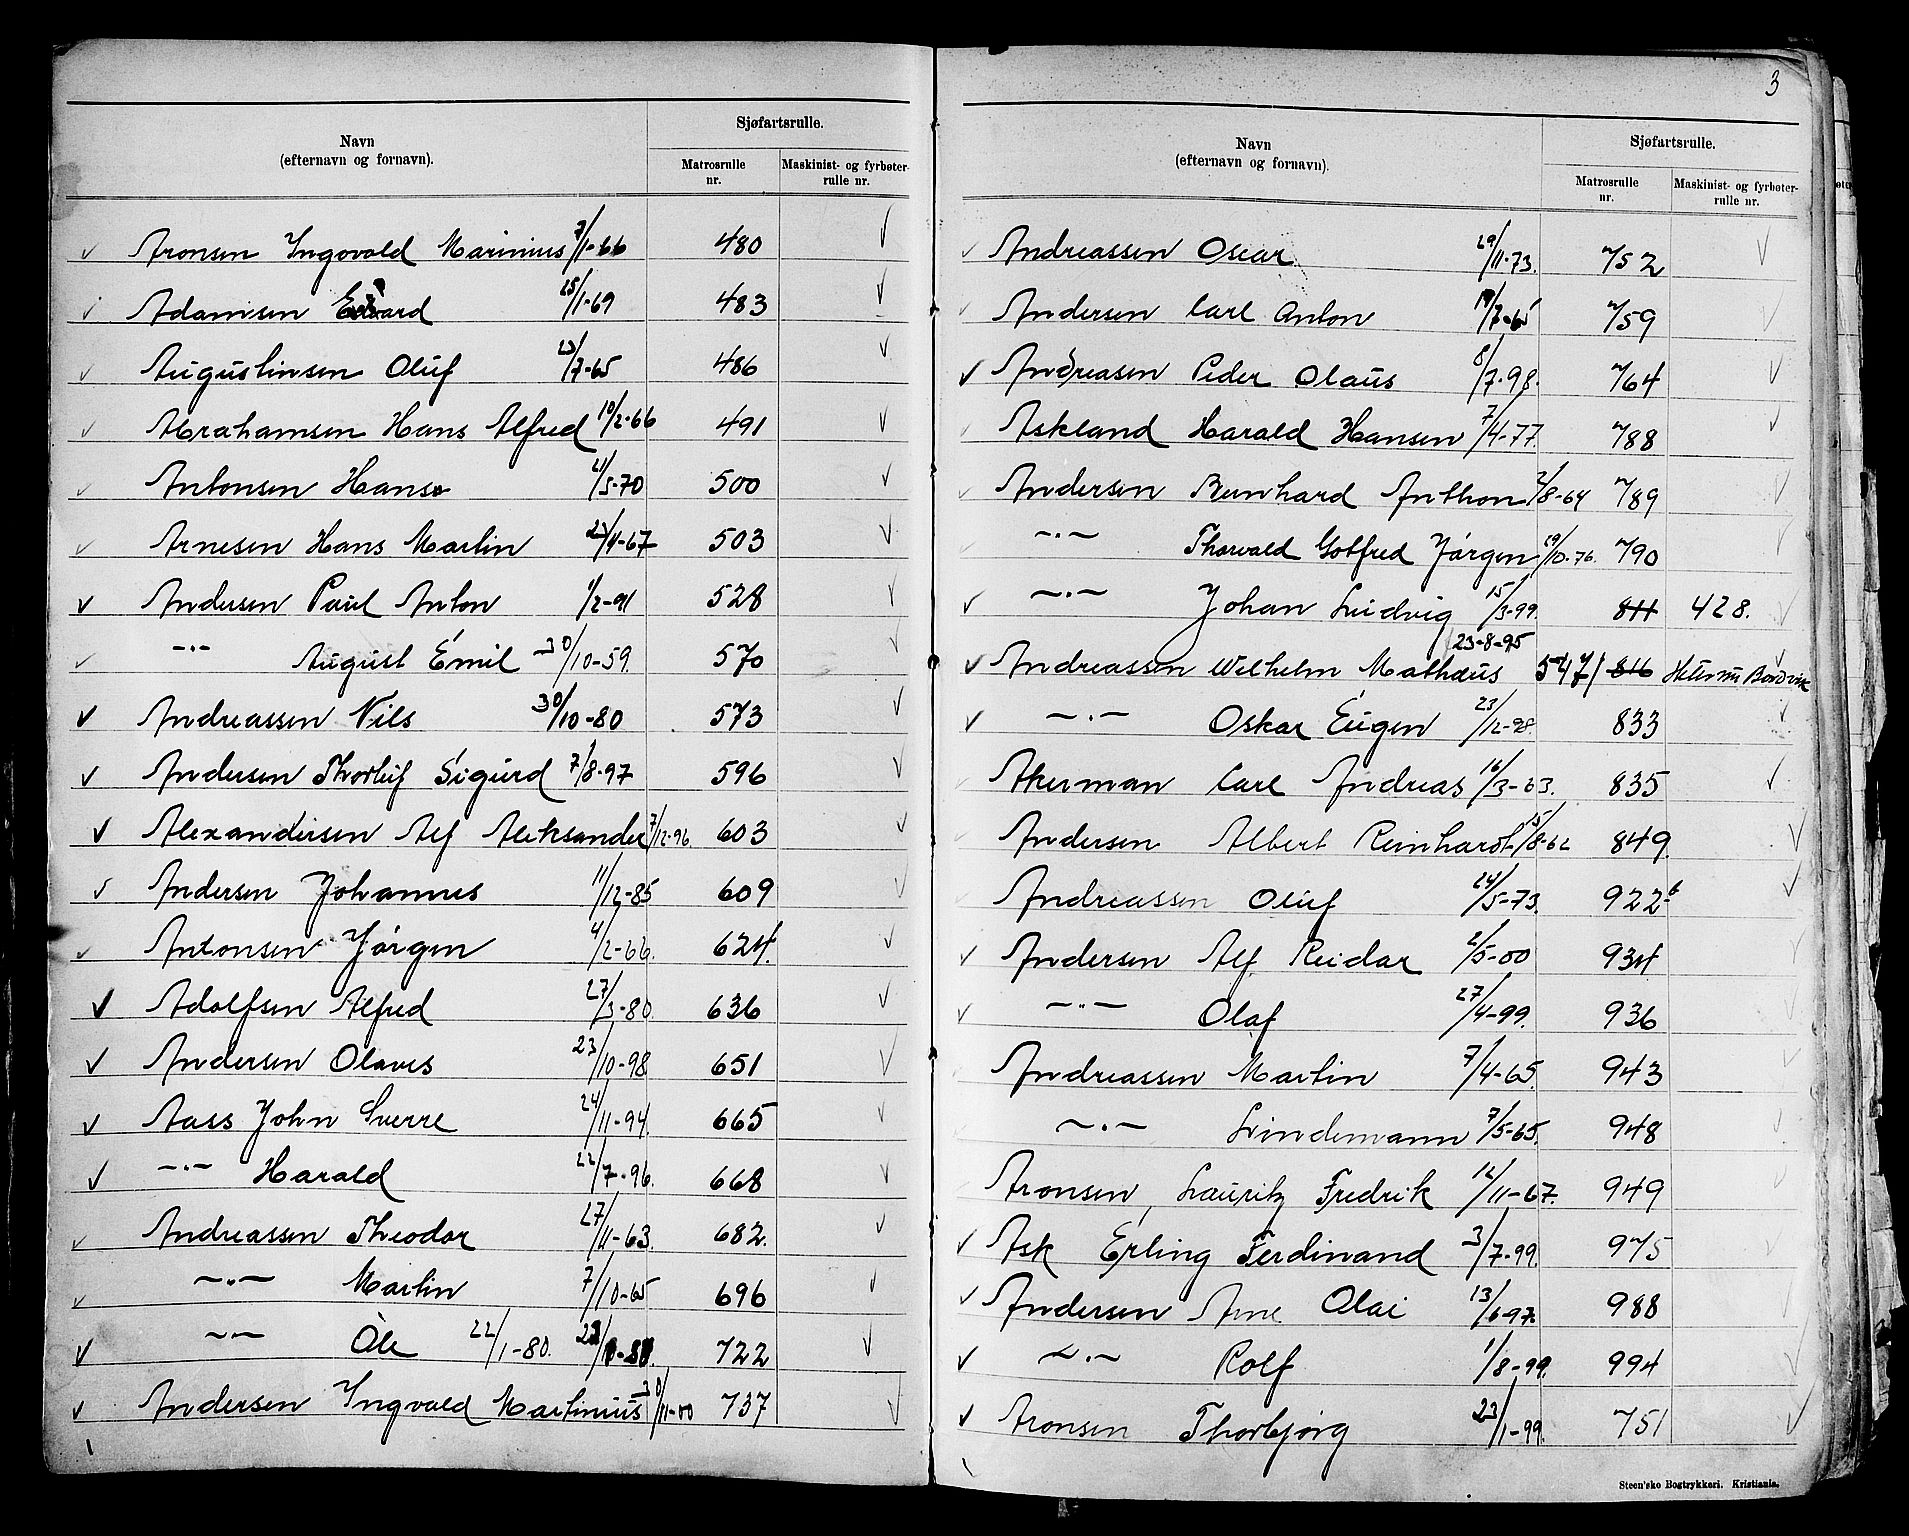 Navn
(efternavn og fornavn).
Sjøfartsrulle.
Matrosrulle nr.
Maskinist- og fyrbøter-rulle nr.
Aronsen Ingovald Marinius 7/1-66 480
Adamsen Edvard 25/1-69 483
Augustinsen Oluf 23/7-65 486
Abrahamsen Hans Alfred 10/2-66 491
Antonsen Hans 21/5-70 500
Arnesen Hans Martin 23/11-67 503
Andersen Paul Anton 1/2-91 528
-"- August Emil 30/10-59. 570
Andreassen Nils 30/10-80 573
Andersen Thorleif Sigurd 7/8-97 596
Alexandersen Alf Aleksander 7/12-96 603
Andersen Johannes 11/12-85 609
Antonsen Jørgen 4/2-66. 624.
Adolfsen Alfred 27/3-80 636
Andersen Olaves 23/10-98 651
Aass John Sverre 24/11-94. 665
-"- Harald 22/7-96. 668
Andreassen Theodor 27/11-63. 682.
-"- Martin 7/10-65 696
-"- Ole 22/1-80. 722
Andersen Ingvald Martinius 30/11-00 737
3
Navn
(efternavn og fornavn).
Sjøfartsrulle.
Matrosrulle nr.
Maskinist- og fyrbøter-rulle nr.
Andreassen Oscar 29/11-73. 752
Andersen Carl Anton 19/7-65 759
Andreasen Peder Olaus 8/7-98. 764
Askland Harald Hansen 7/4-77. 788
Andersen Bernhard Anthon 2/8-64 789
-"- Thorvald Gotfred Jørgen 19/10-76. 790
-"- Johan Ludvig 15/3-99. 811 428.
23-8-95
Andreassen Wilhelm Mathæus 547/ 816
-"- Oskar Eugen 23/12-98. 833
Akerman Carl Andreas 16/3-63. 835
Andersen Albert Reinhardt 15/8-62 849.
Andreassen Oluf 24/5-73. 922b
Andersen Alf Reidar 2/5-00 934
-"- Olaf 27/4-99. 936
Andreassen Martin 7/4-65. 943
-"- Lindemann 7/5-65. 948
Aronsen, Lauritz Fredrik 12/11-67. 949
Ask Erling Ferdinand 3/7-99. 975
Andersen Arne Olai 13/6-97. 988
-"- Rolf 1/8-99. 994
Aronsen Thorbjørg 23/1-99. 751
Steen'ske Bogtrykkeri. Kristiania.